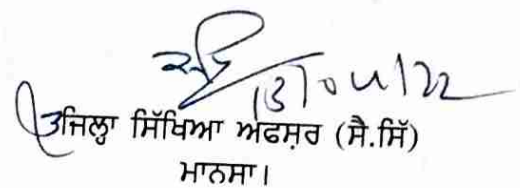 13/04/22
ਜਿਲ੍ਹਾ ਸਿੱਖਿਆ ਅਫਸ਼ਰ (ਸੈ.ਸਿੱ)
ਮਾਨਸਾ।